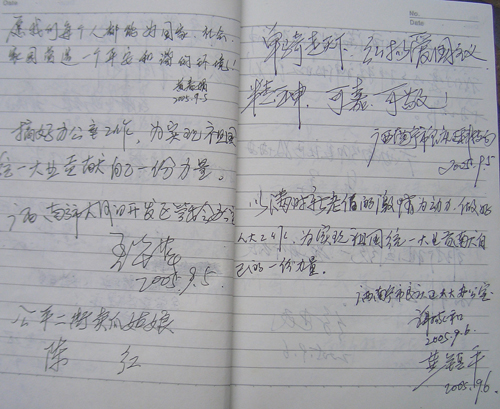 愿我们每个人都能为国家、社会、
家园营造一个平安和谐的环境！
2005.9.5
搞好办公室工作，为实现祖国
统一大业贡献自己一份力量。
广西南宁大沙田开发区
2005.9.5.
公平二街卖瓜姑娘
陈 红
No.
Date
单骑走天下、弘扬爱国主义
精神、可嘉、可敬！
广西南宁市
2005.9.5
以满腔热情的激情为动力，做好
人大工作，为实现祖国统一大业贡献自
己的一份力量。
广西南宁市良庆区人大办公室
2005.9.6.
黄
2005.9.6.